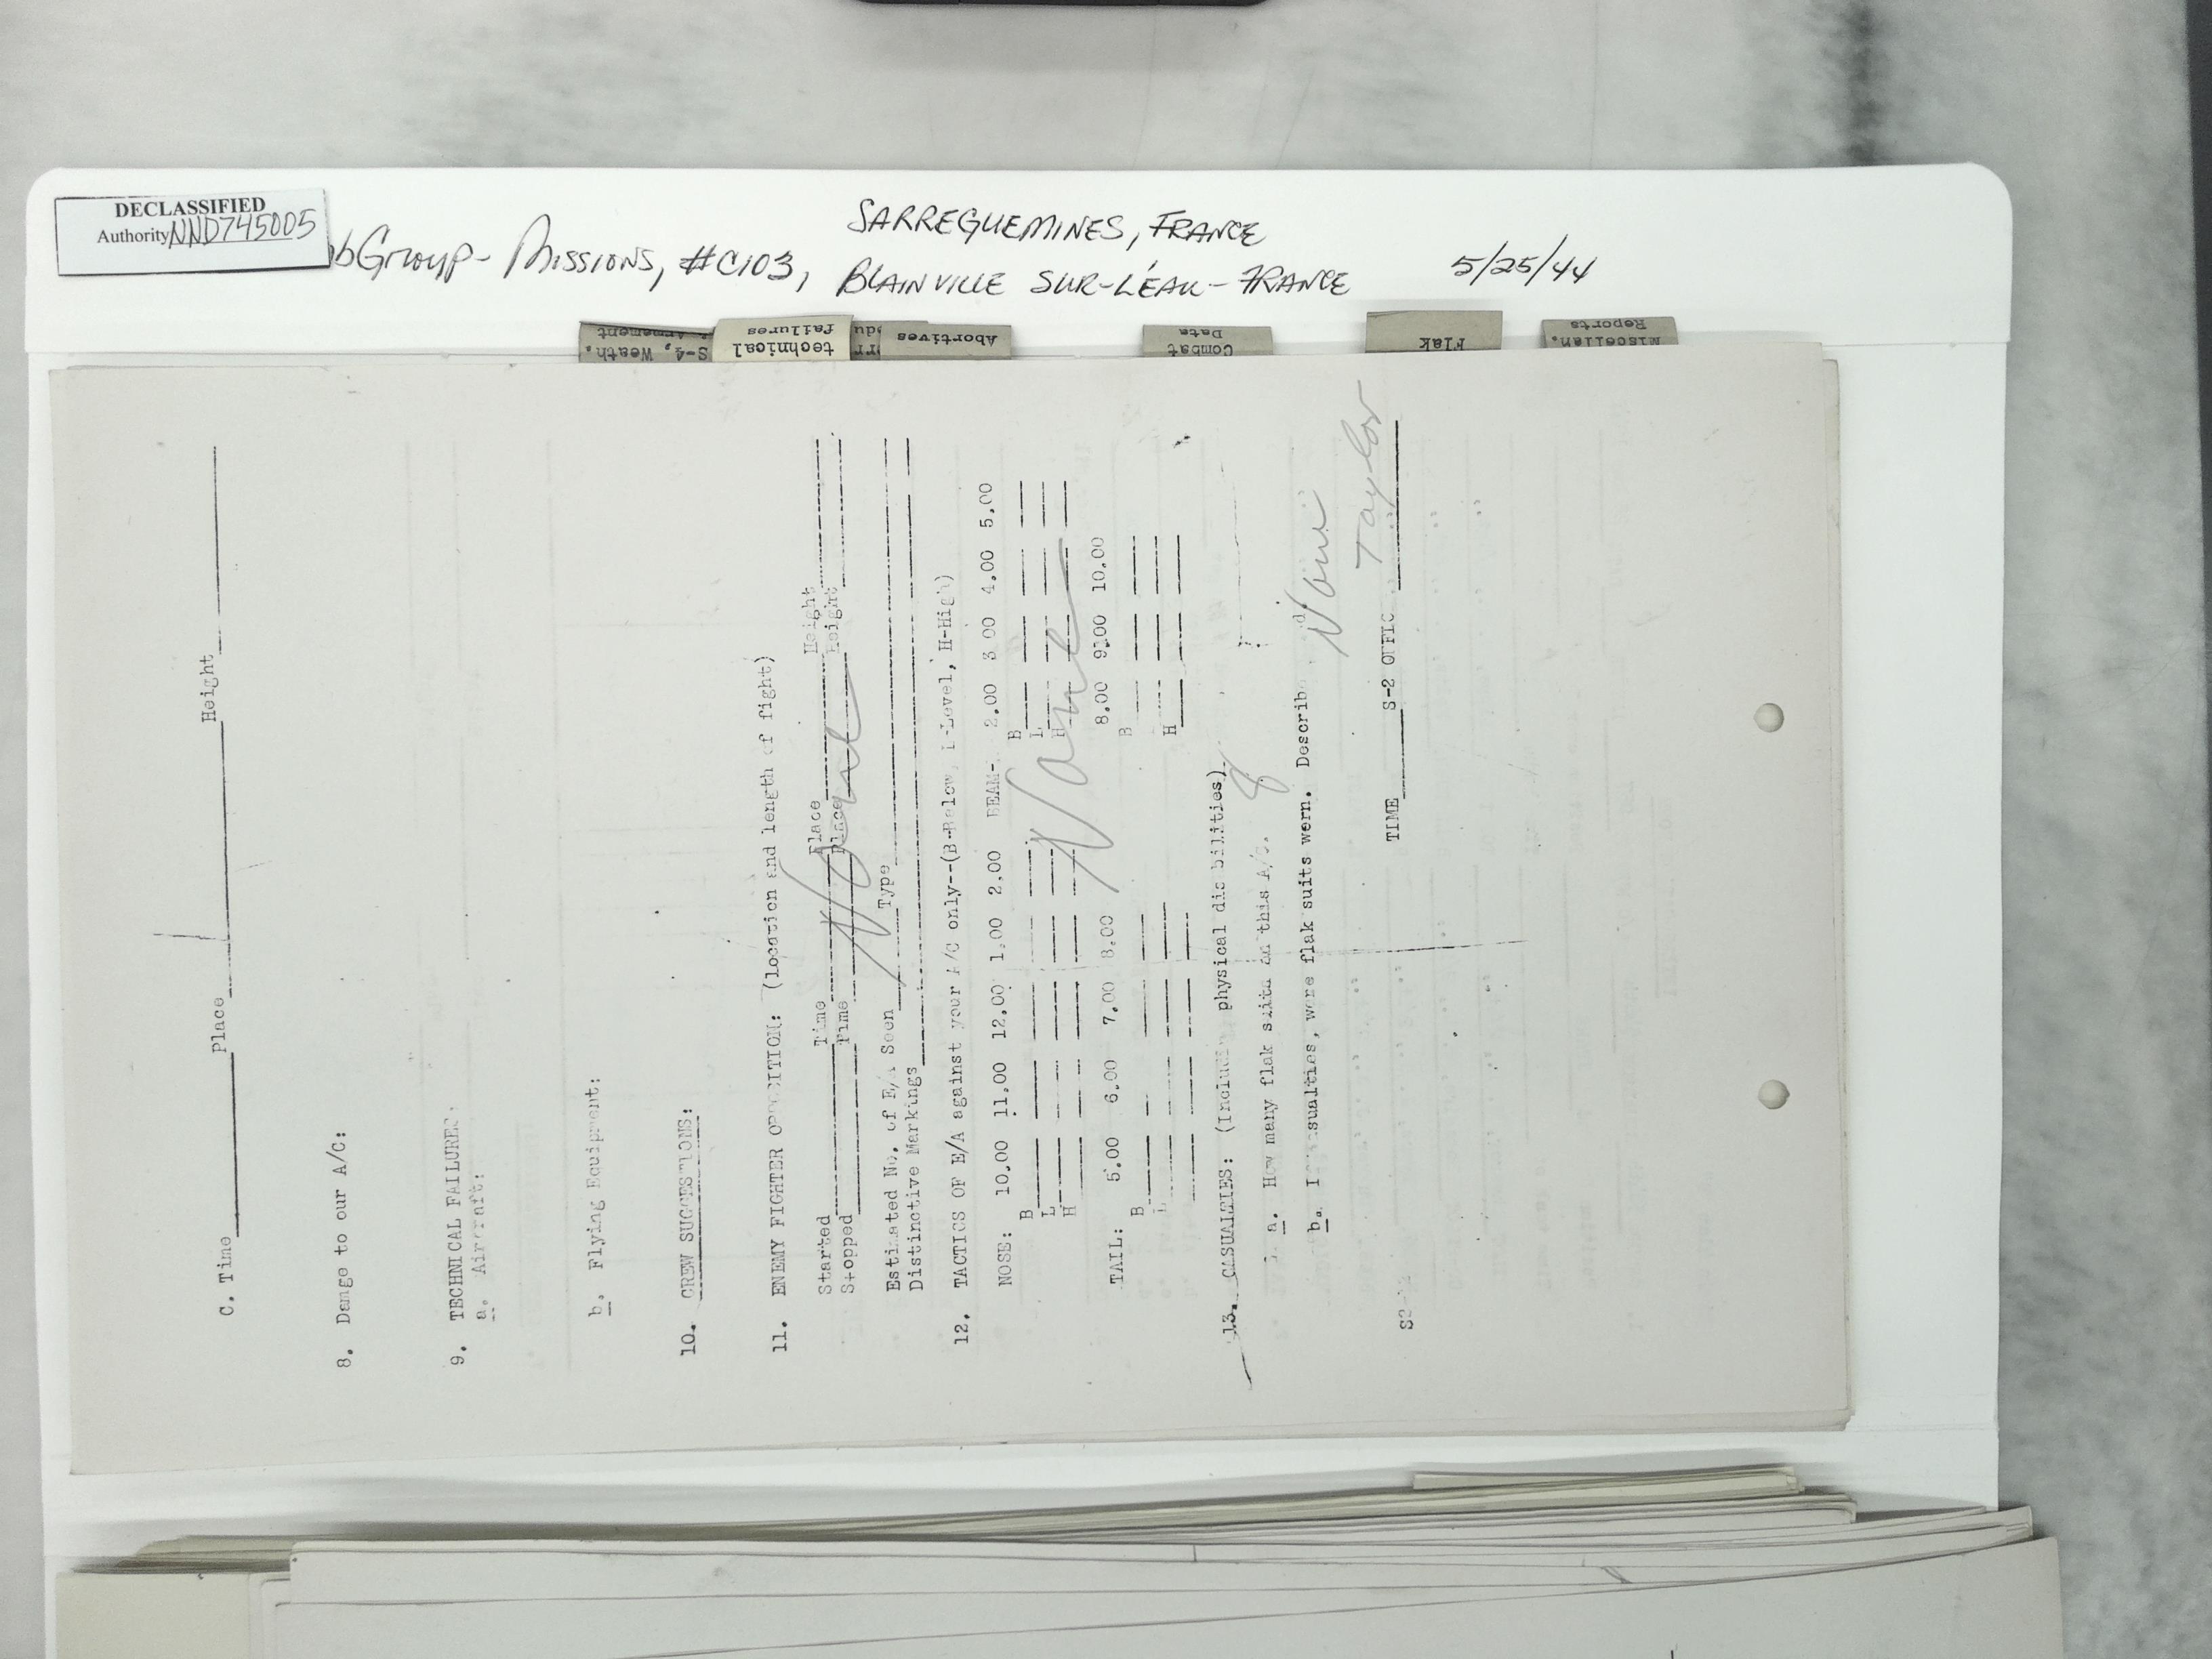 DECLASSIFIED
Authority NND745005
bGroup - Missions, #C103,
SARREGUEMINES, FRANCE
BLAINVILLE SUR-L'EAU - FRANCE
5/25/44
S-4, Weath.
& Armement
technical
failures
Abortives
Combat
Data
Flak
Miscellan.
Reports
C. Time Place Height
8. Damge to our A/C:
9. TECHNICAL FAILURES.
a. Aircraft:
b. Flying Equipment:
10. CREW SUGGESTIONS:
11. ENEMY FIGHTER OPPOSITION: (location and length of fight)
Started Time Place Height
Stopped Time Place Height
None
Estimated No. of E/A Seen Type
Distinctive Markings
12. TACTICS OF E/A against your A/C only--(B-Below, L-Level, H-High)
NOSE: 10.00 11.00 12.00 1.00 2.00 BEAM- 2.00 3 00 4.00 5.00
B B
L L
H H
None
TAIL: 5.00 6.00 7.00 8.00 8.00 9.00 10.00
B B
L
H
13. CASUALTIES: (Including physical dis bilities)
a. How many flak suits in this A/C. 8
b. I sualties, were flak suits worn. Describ d.
None
TIME S-2 OFFIC Taylor
S2-